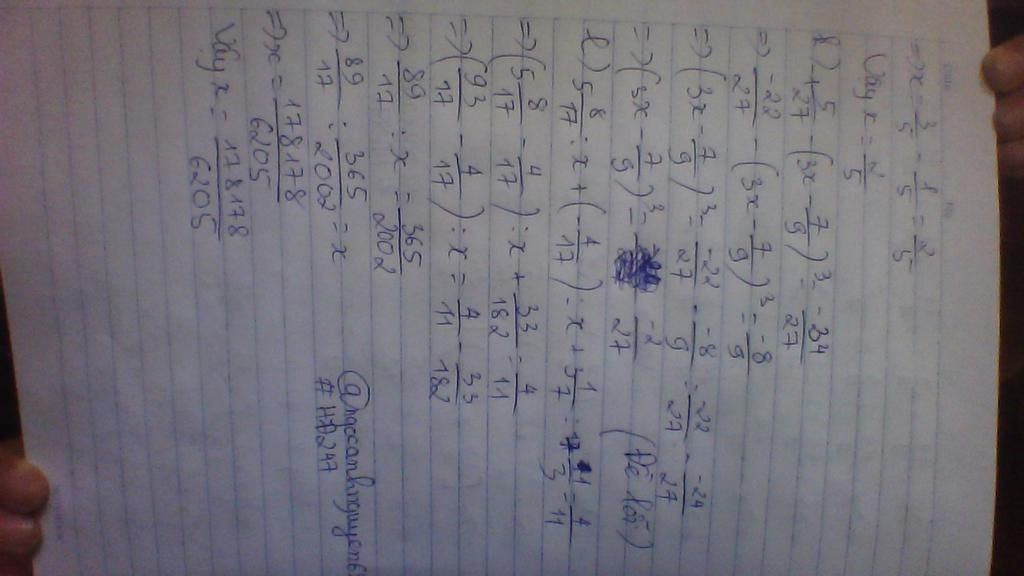 => x = 3/5 - 1/5 = 2/5
Vậy x = 2/5
k) 1 5/27 - (3x - 7/9)³ = -24/27
=> -22/27 - (3x - 7/9)³ = -8/9
=> (3x - 7/9)³ = -22/27 - -8/9 = -22/27 - -24/27
=> (3x - 7/9)³ = -2/27 (Đề lỗi)
l) 5 8/17 : x + (-4/17) : x + 3 1/7 : 17 1/3 = 4/11
=> (5 8/17 - 4/17) : x + 33/182 = 4/11
=> (93/17 - 4/17) : x = 4/11 - 33/182
=> 89/17 : x = 365/2002
=> 89/17 : 365/2002 = x
=> x = 178178/6205
Vậy x = 178178/6205